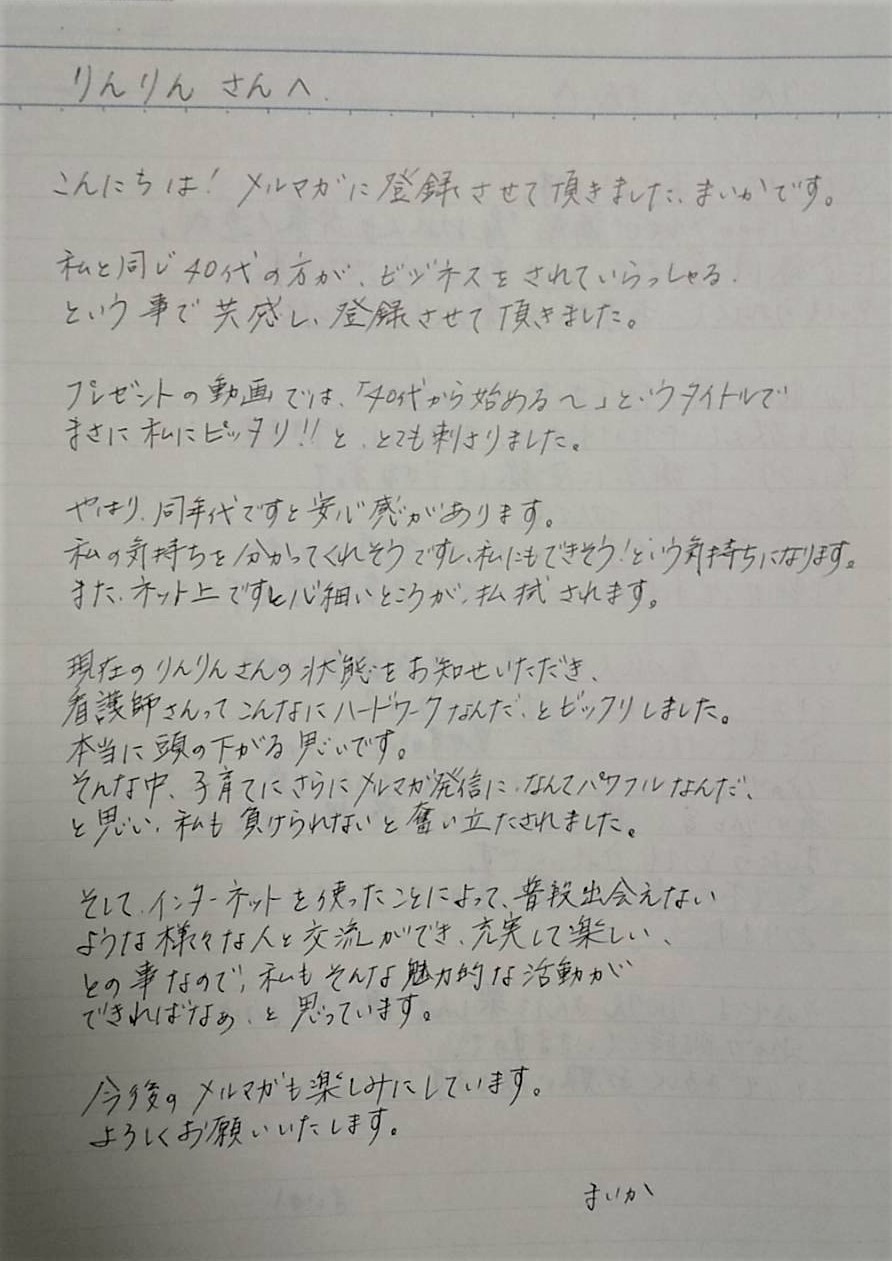 りんりん さんへ
こんにちは! メルマガに登録させて頂きました、まいかです。
私と同じ40代の方が、ビジネスをされていらっしゃる
という事で共感し、登録させて頂きました。
プレゼントの動画では、「40代から始める〜」というタイトルで
まさに私にピッタリ!!と、とても刺さりました。
やはり、同年代ですと安心感があります。
私の気持ちを分かってくれそうですし、私にもできそう!という気持ちになります。
また、ネット上ですと心細いところが、払拭されます。
現在のりんりんさんの状態をお知せいただき、
看護師さんってこんなにハードワークなんだ、とビックリしました。
本当に頭の下がる思いです。
そんな中、子育てにさらにメルマガ発信に、なんてパワフルなんだ、
と思い、私も負けられないと奮い立たされました。
そして、インターネットを使ったことによって、普段出会えない
ような様々な人と交流ができ、充実して楽しい、
との事なので、私もそんな魅力的な活動が
できればなぁ、と思っています。
今後のメルマガも楽しみにしています。
よろしくお願いいたします。
まいか